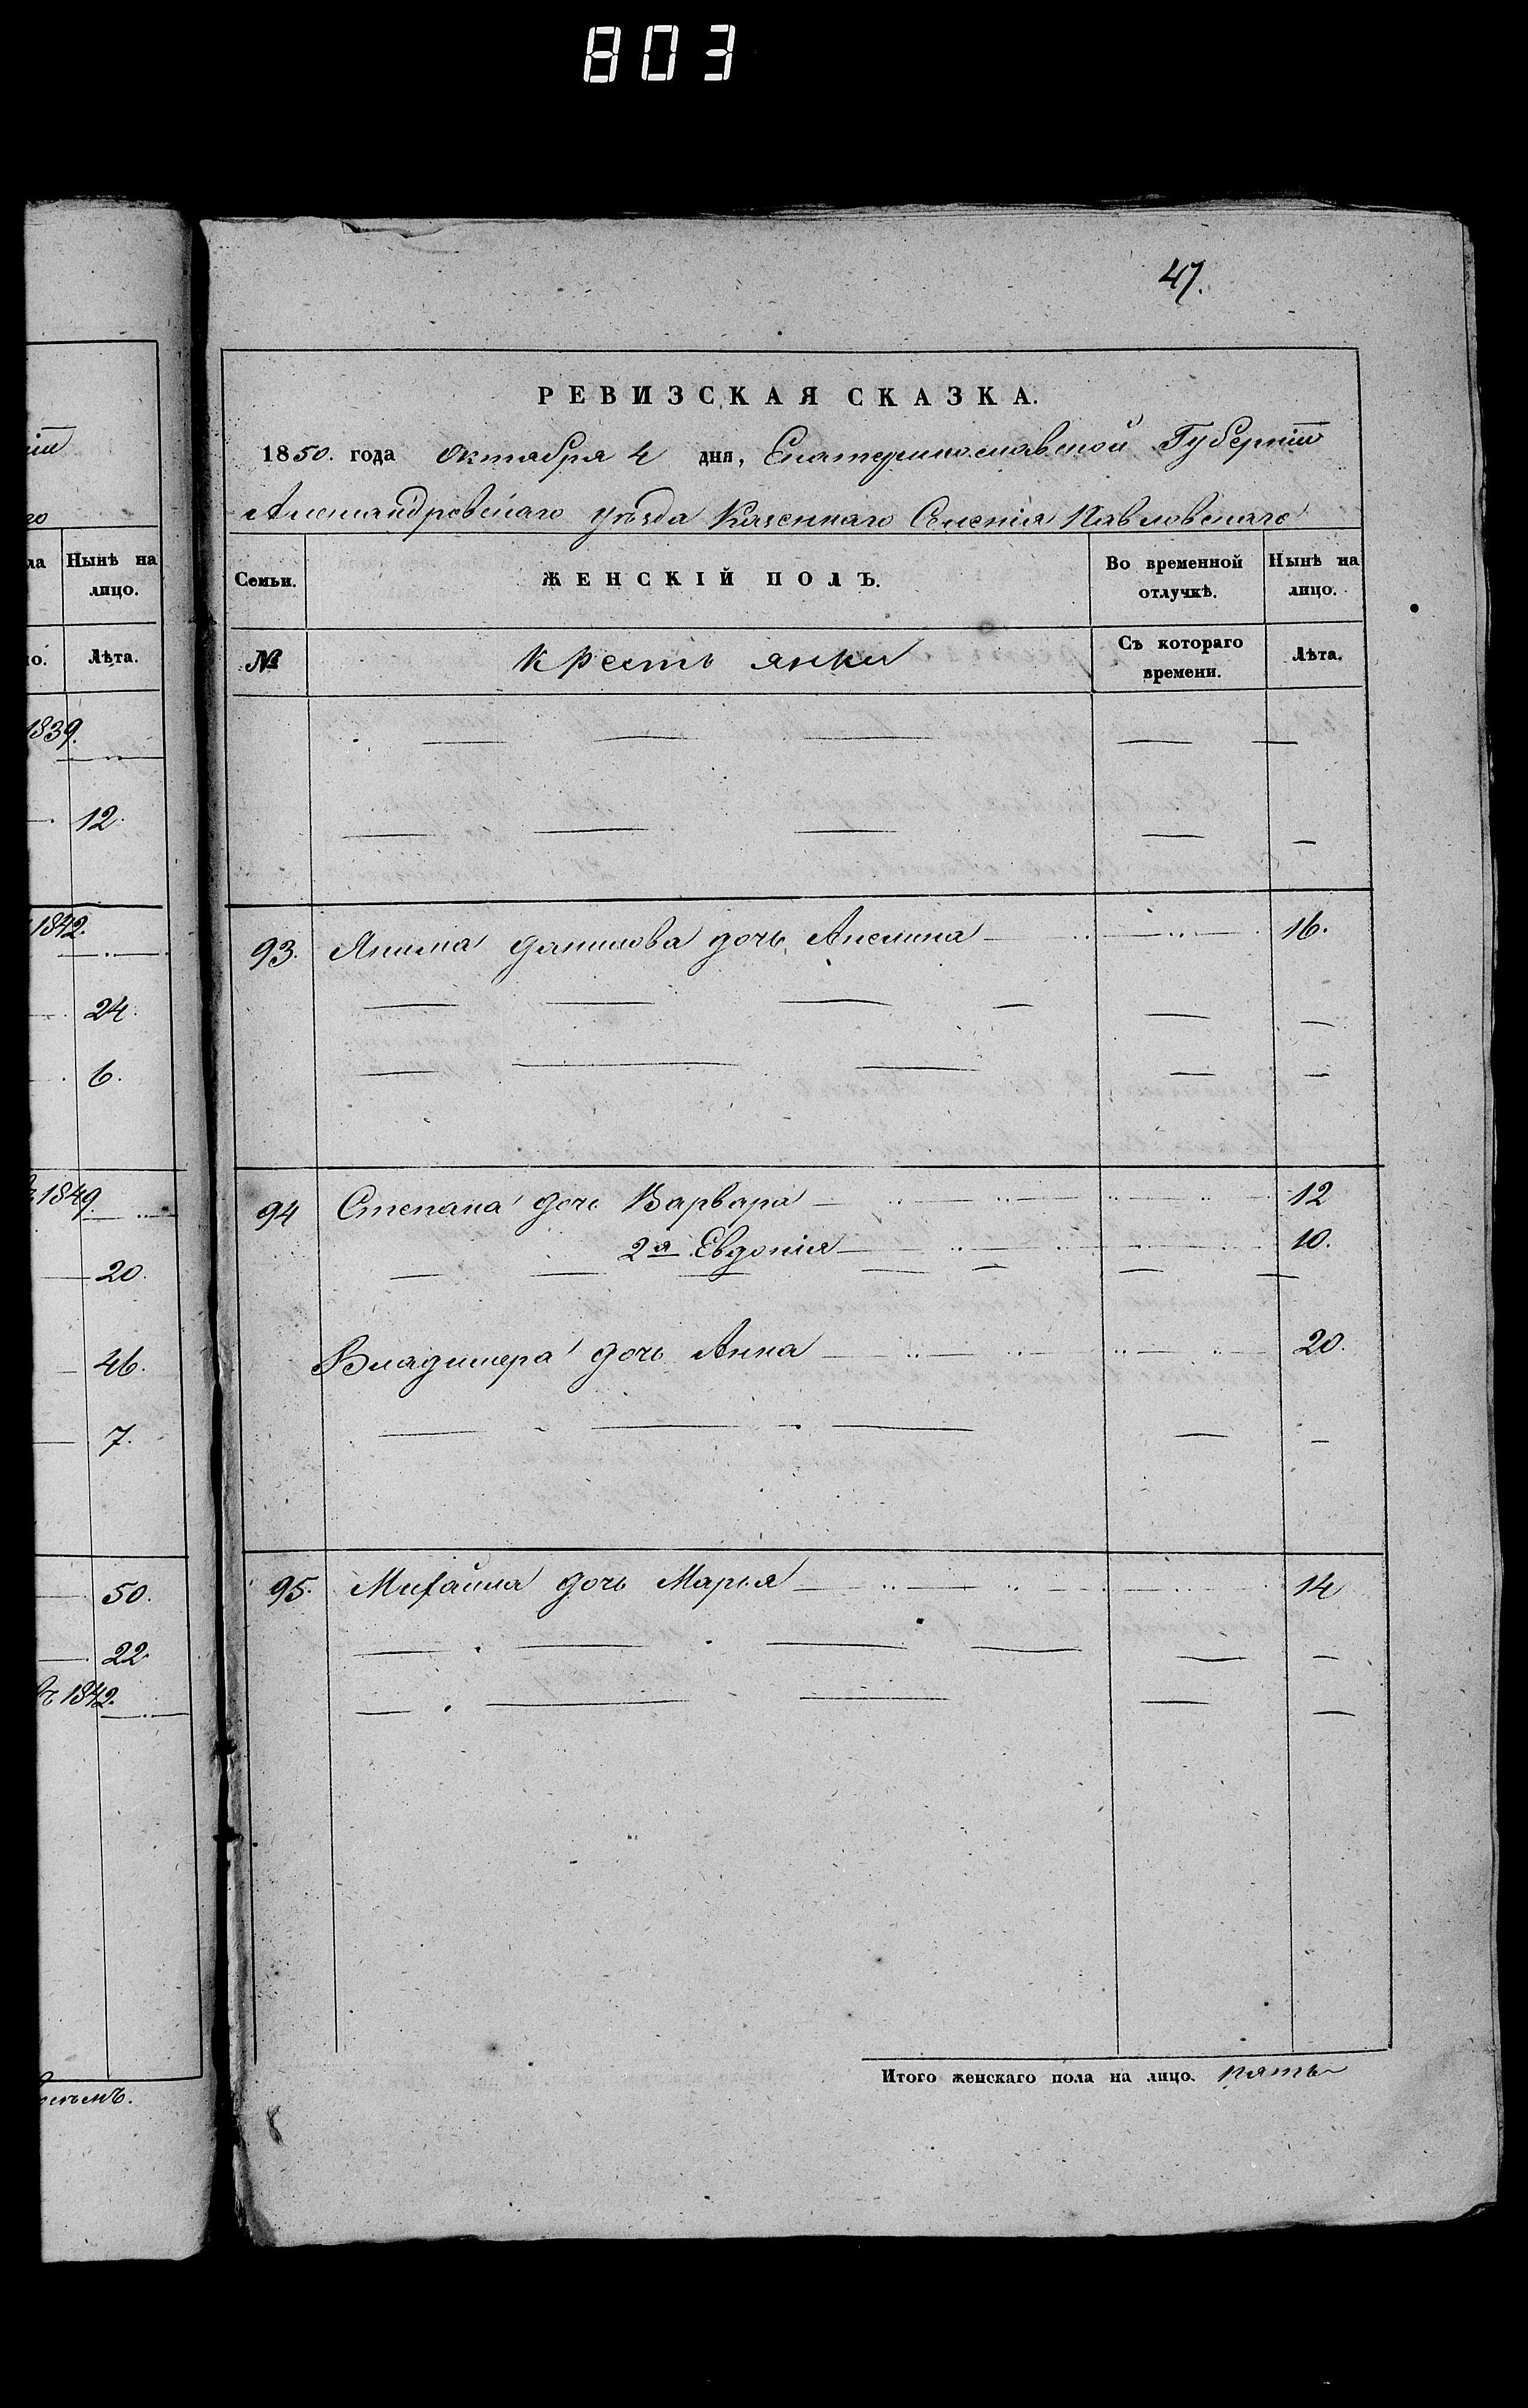 803
47.
РЕВИЗСКАЯ СКАЗКА.
1850. года Октября 4 дня, Екатеринославской Губерніи
Александровскаго уѣзда Казеннаго Селенія Павловскаго
Семьи.
ЖЕНСКІЙ ПОЛЪ.
Во временной отлучкѣ.
Нынѣ на лицо.
№
Кресть янки
Съ котораго времени.
Лѣта.
93. Якима Данилова дочь Акелина 16.
94 Степана дочь Варвара 12
2я Евдокія 10.
Владимера дочь Анна 20.
95. Михайла дочь Марья 14
Итого женскаго пола на лицо. пять
Нынѣ на
лицо.
Лѣта.
1839.
12.
1842.
24.
6.
1849.
20.
46.
7.
50.
22.
1842.